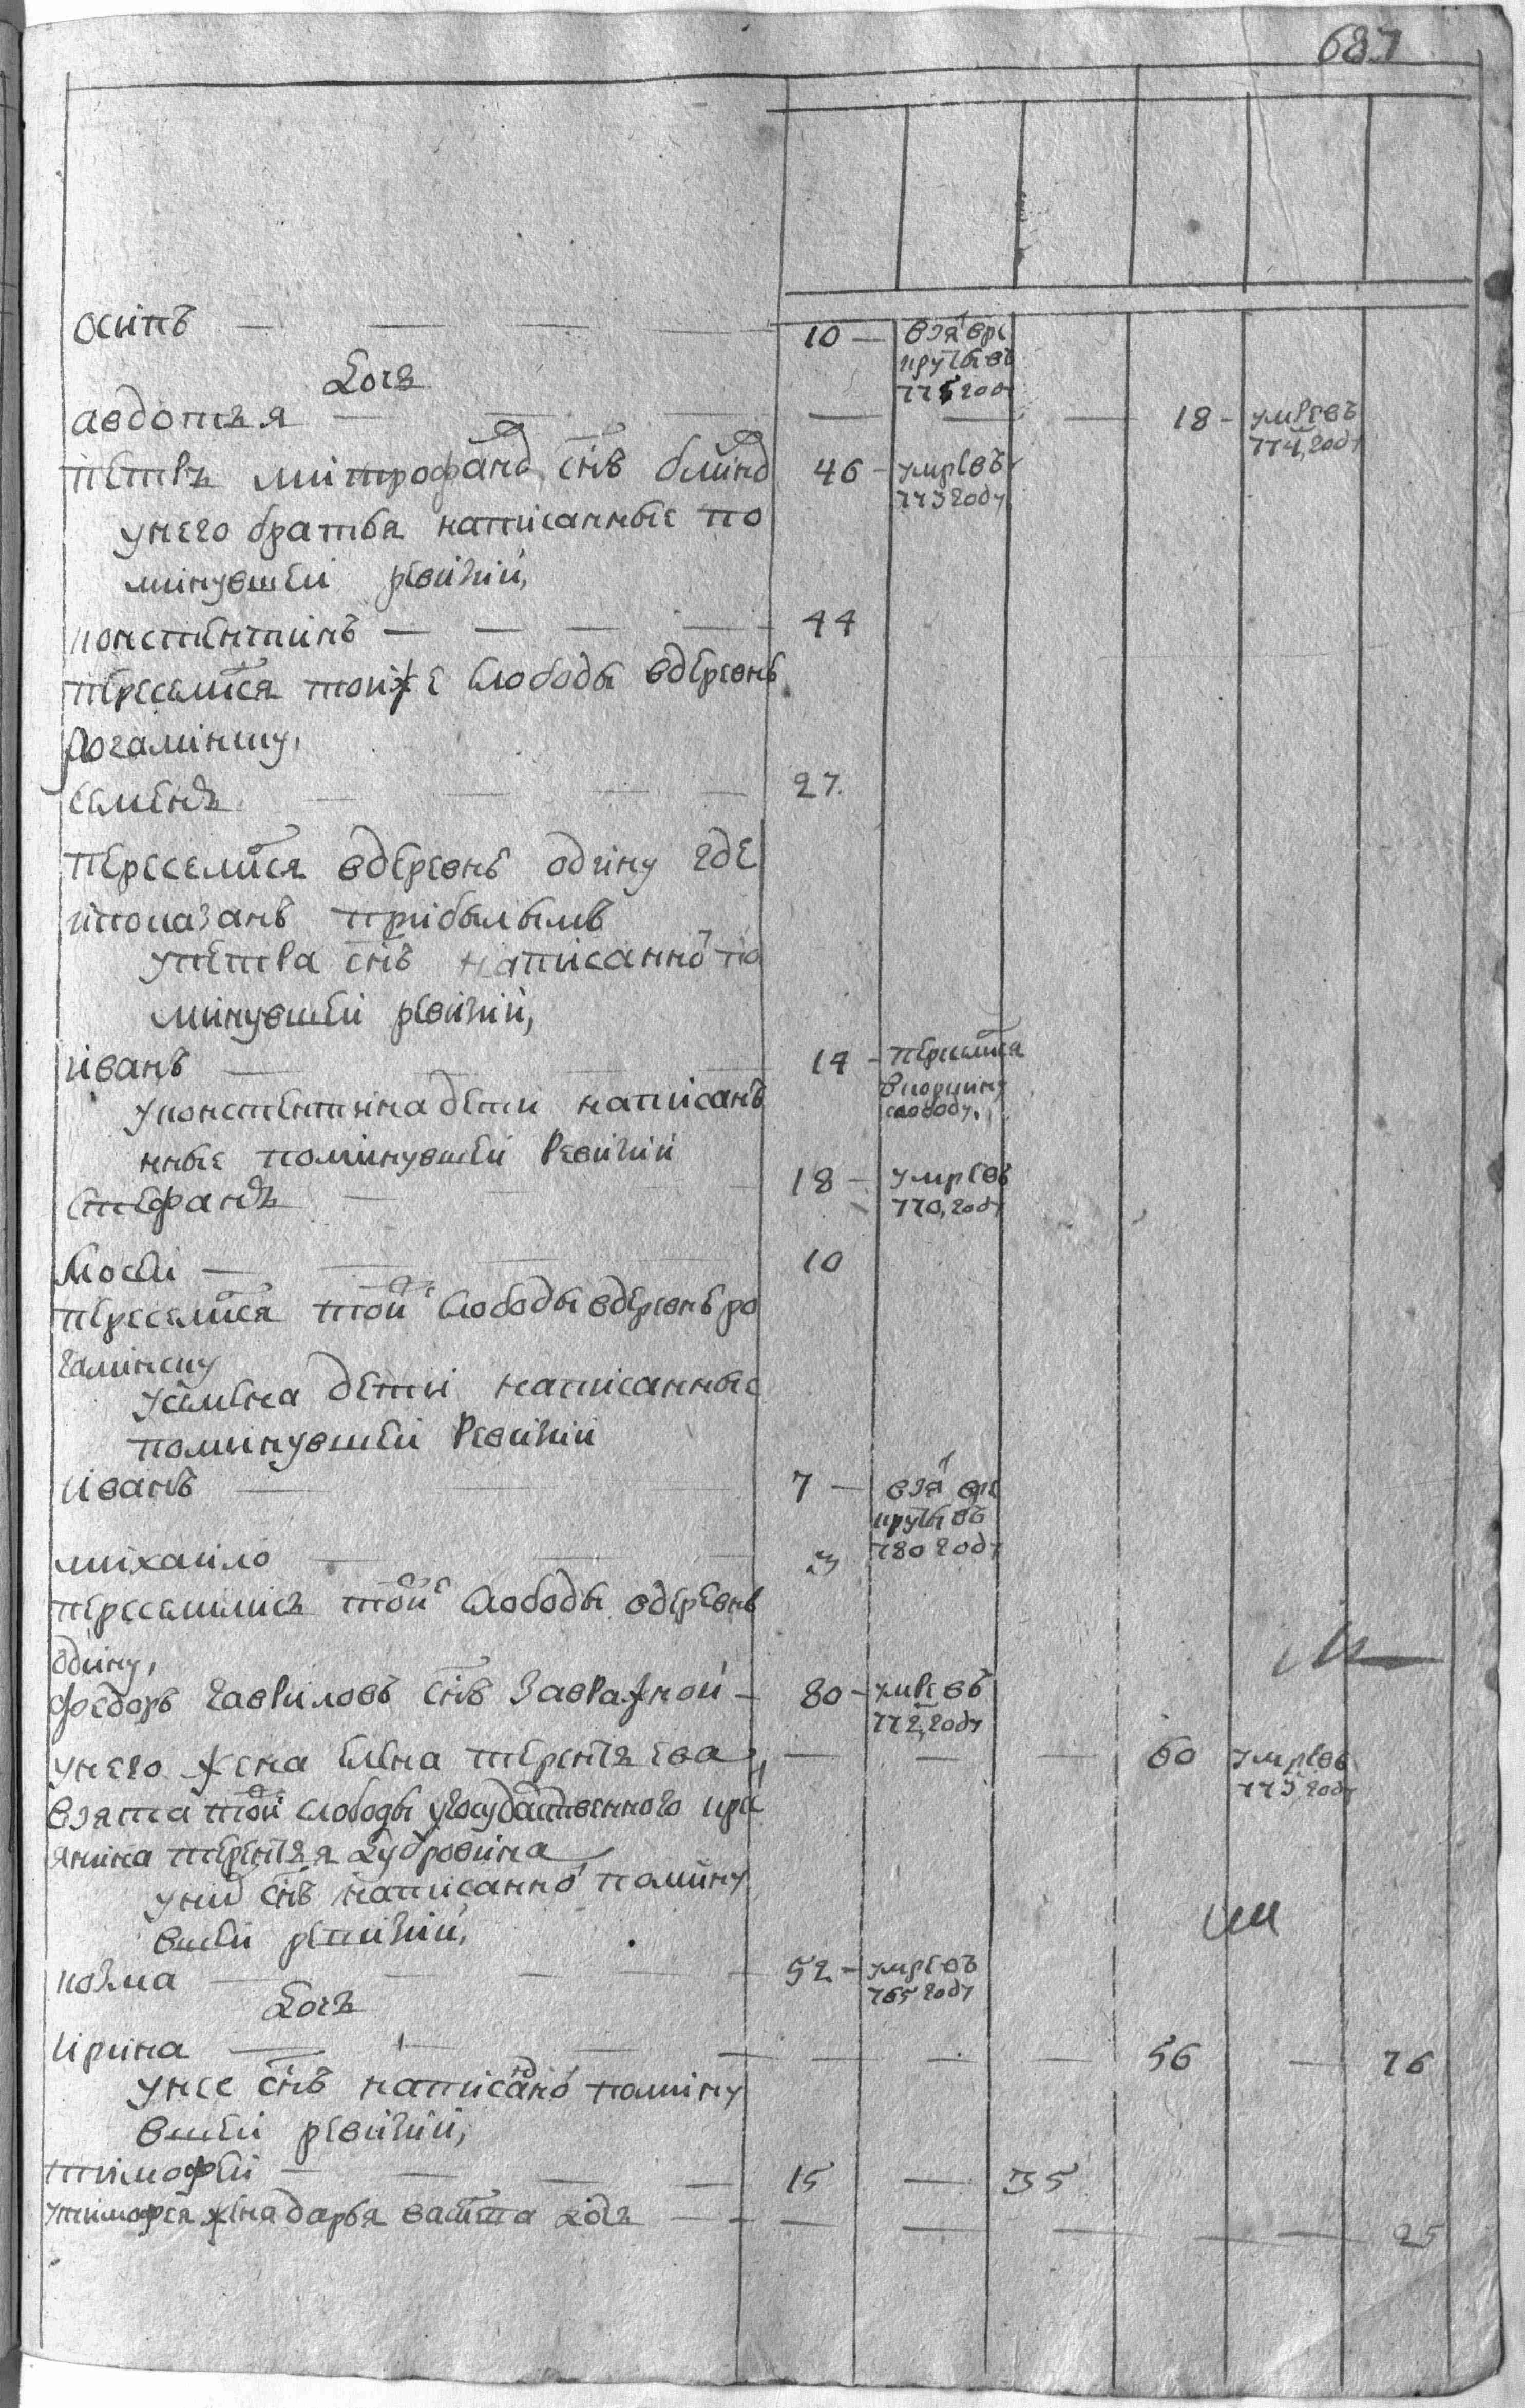 687
осипъ — — — — 10 — взя врекруты въ 775 году
дочь
авдотья — — — — — — 18 — умре въ 774, году
петръ митрофановъ снъ блиновъ 46 — умре въ 773 году
унего братья написанные по
минувшей ревизии,
констентинъ — — — — 44
переселился тойже слободы вдеревнѣ
рогалинску,
семенъ — — — — 27.
переселился вдеревнѣ одину где
ипоказанъ прибылымъ
упетра снъ написанной по
минувшей ревизии,
иванъ — — — — 14 — переселился в слободу,
уконстентина дети написанъ
нные поминувшей ревизии
стефанъ — — — — 18 — умре въ 770, году
мосеи — — — — 10
переселился той же слободы вдеревнѣ ро
галинску
усемена дети написанные
поминувшей ревизии
иванъ — — — — 7 — взя вре круты въ 780 году
михаило — — — — 3
переселились той же слободы вдеревнѣ
одину,
федоръ гавриловъ снъ завражной — 80 — умре въ 772, году
унего жена елена терентьева, — — — 60 умре въ 775 году
взята той же слободы угосударственного кре
янина терентья дубровина
уних снъ написанной помину
вшей ревизии,
козма — — — — 52 — умре въ 765 году
дочь
ирина — — — — — — — 56 — 76
унее снъ написаной помину
вшей ревизии,
тимофей — — — — 15 — 35
утимофея жена дарья взята — — — — — — — 25